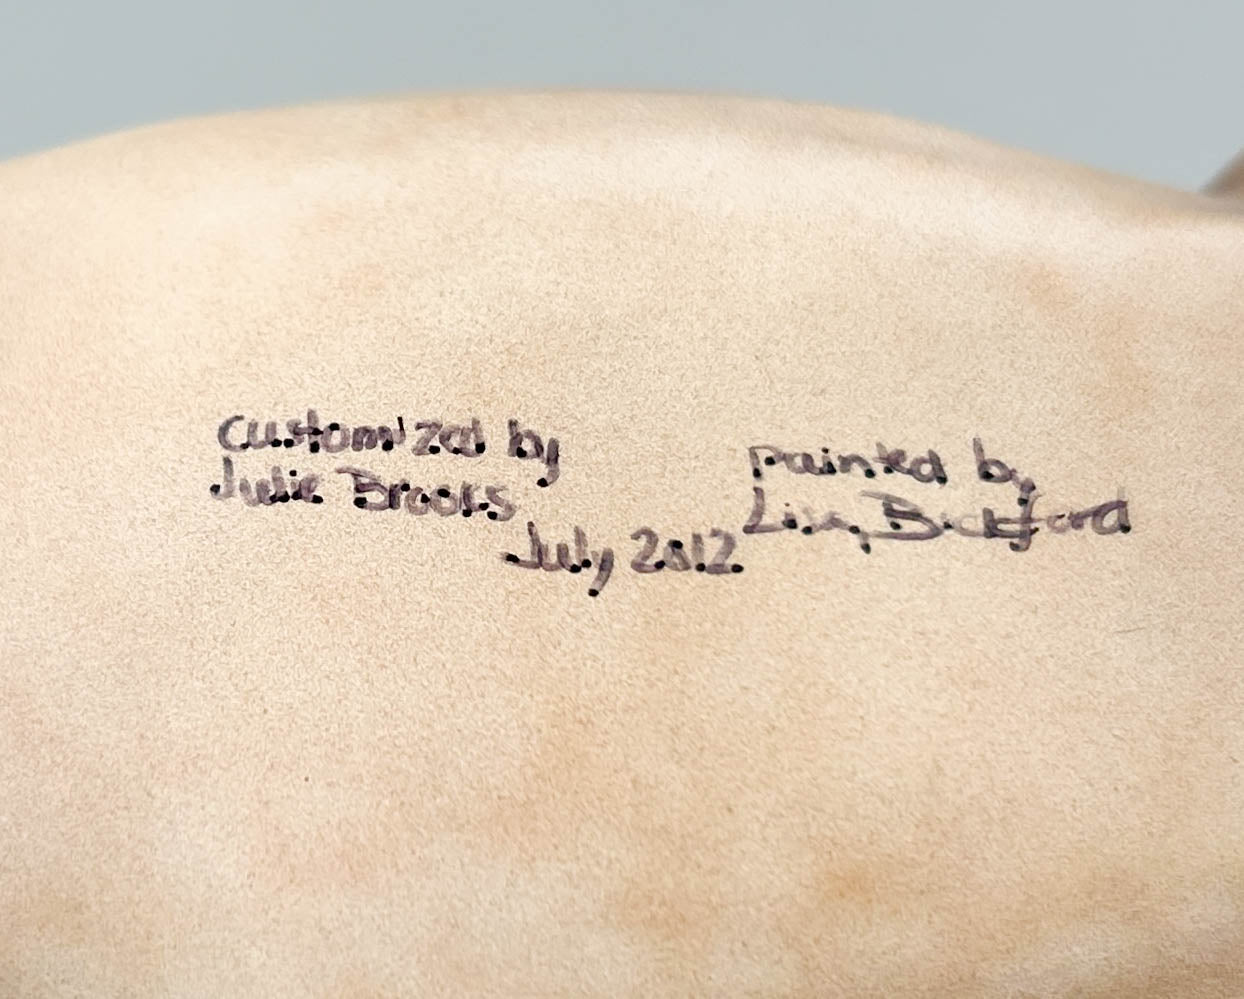 Customized by
Julie Brooks
July 2012
painted by
Lisa Bickford